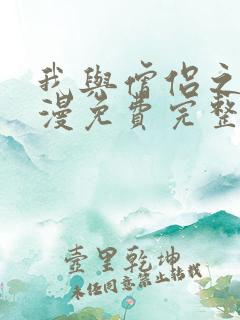 我與僧侶之
漫免費完整
壺里乾坤
未任同意禁止转载